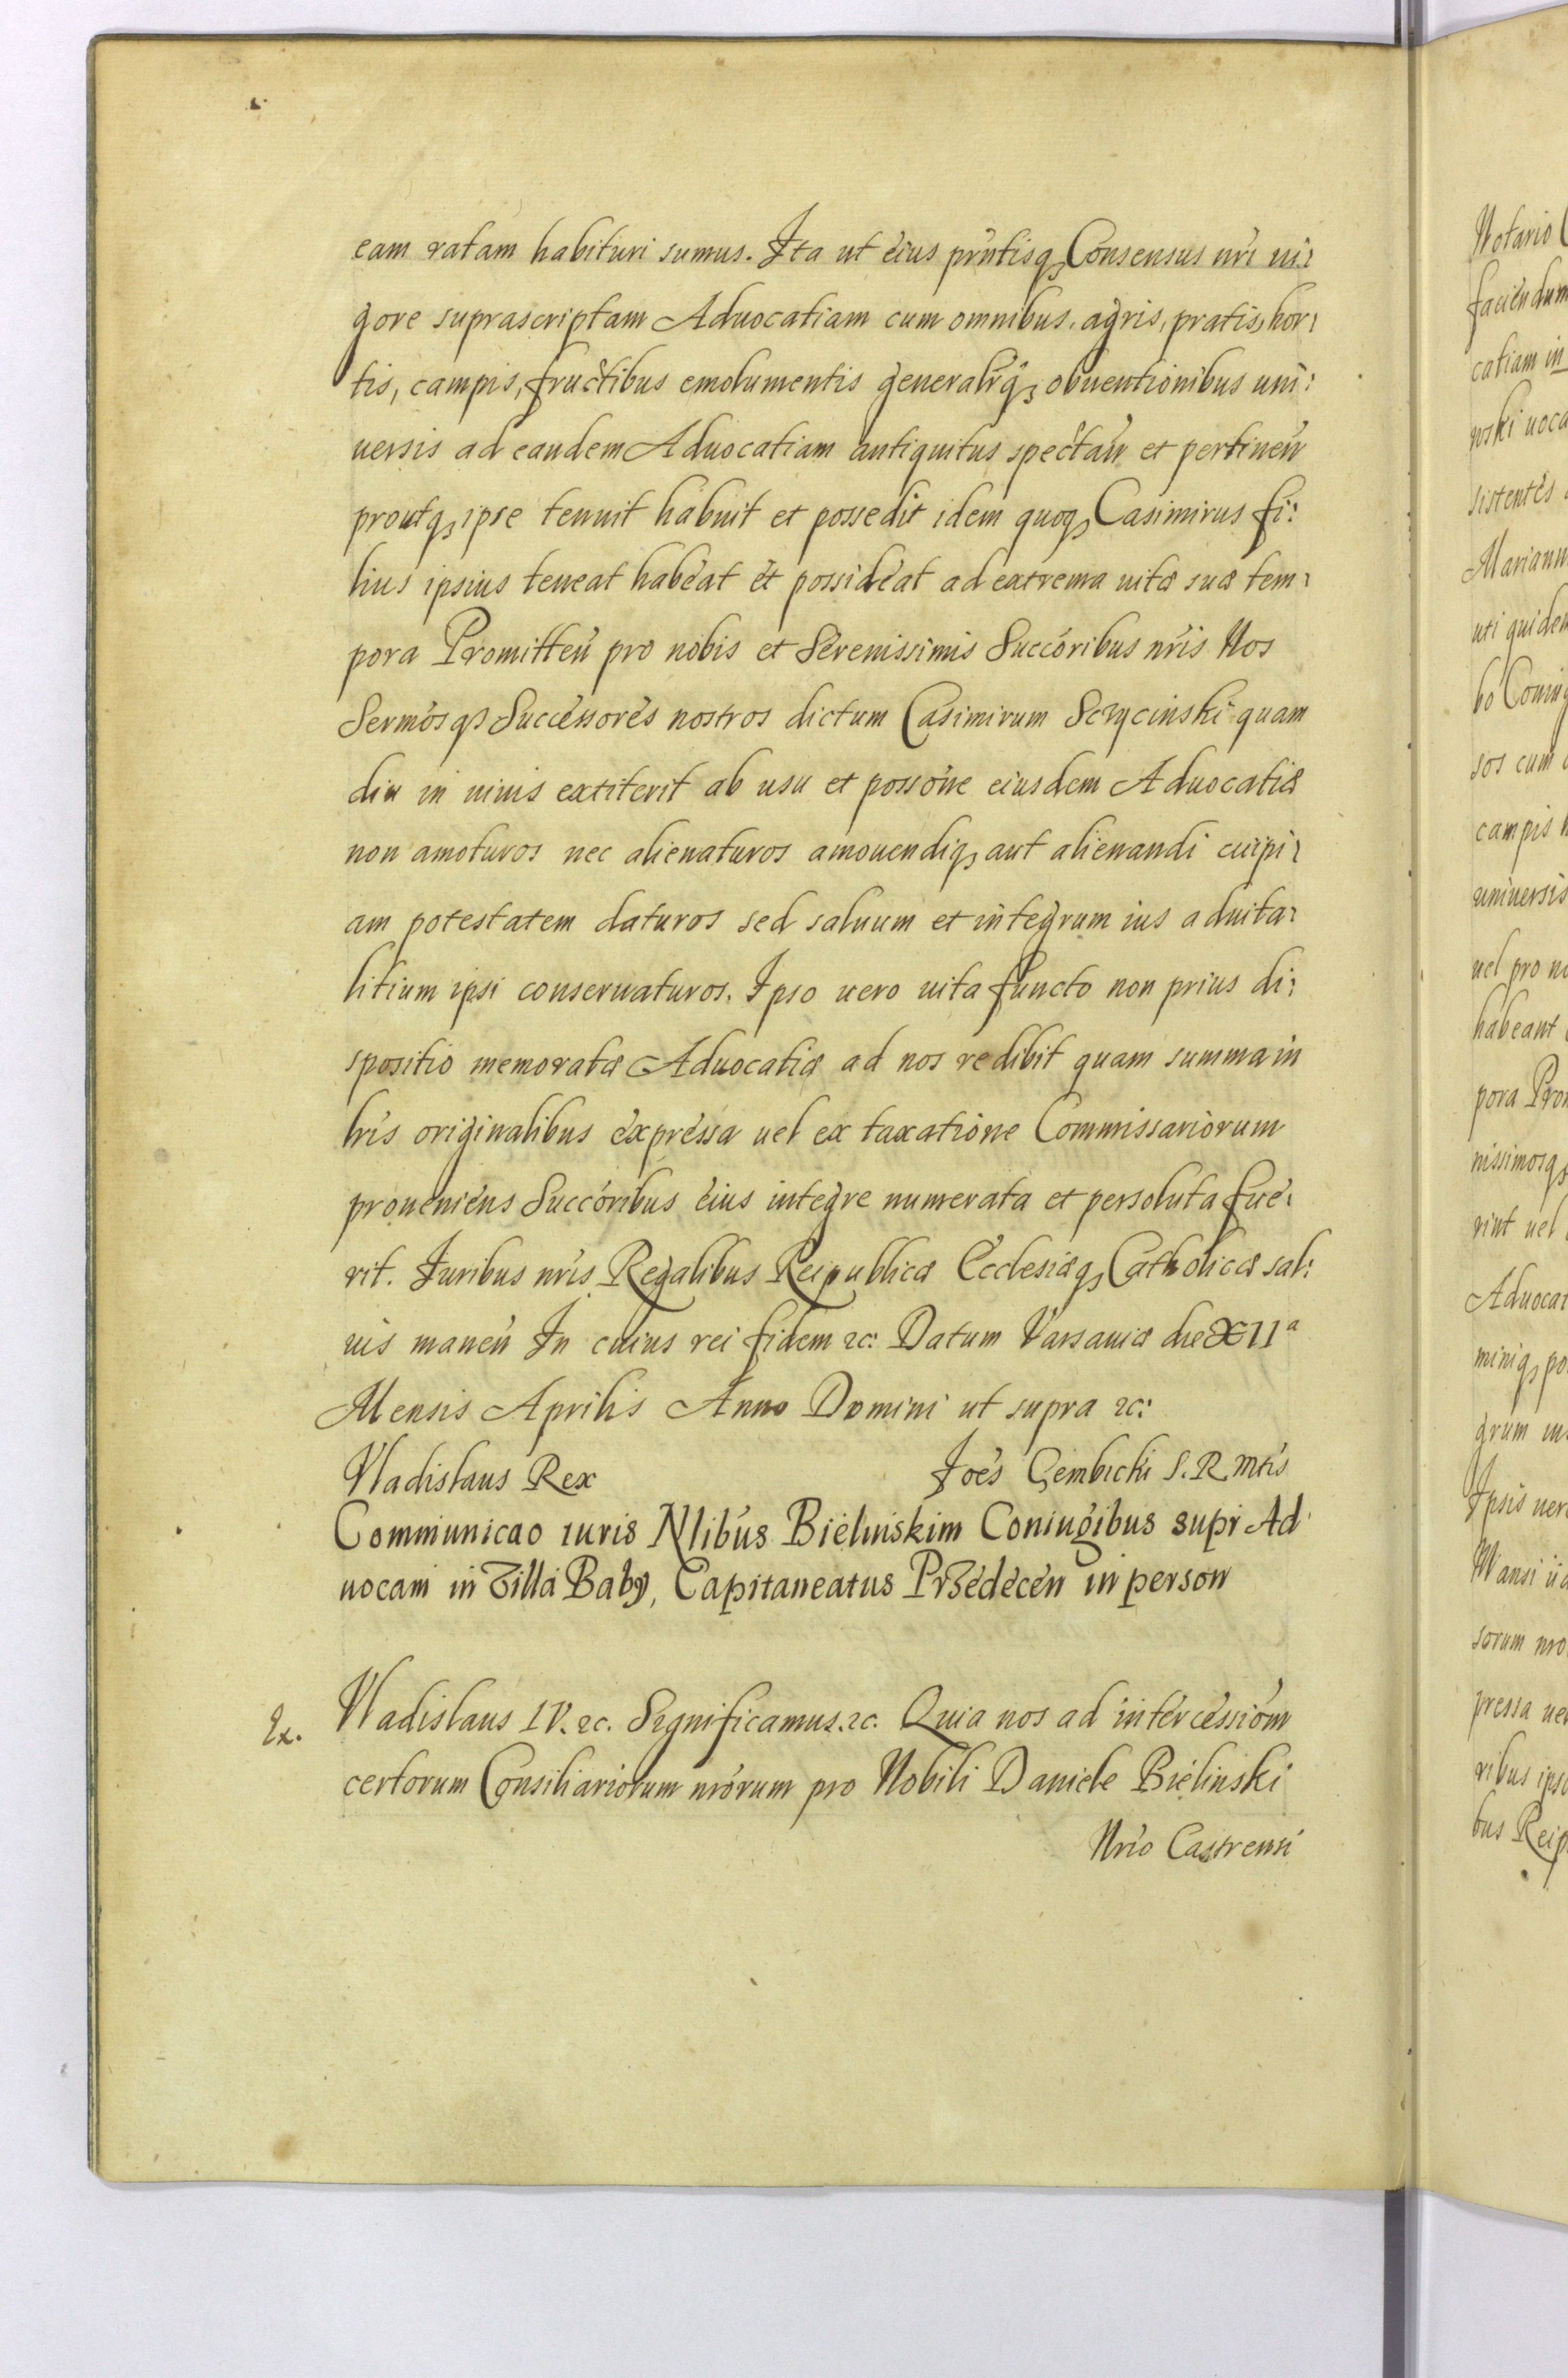 eam ratam habituri sumus. Ita ut eius prñtisq; Consensus nri ui:
gore suprascriptam Aduocatiam cum omnibus, agris, pratis, hor:
tis, campis, fructibus emolumentis generalirq; obuentionibus uni:
uersis ad eandem Aduocatiam antiquitus spectań et pertineń
proutq; ipse tenuit habuit et possedit idem quoq; Casimirus fi:
lius ipsius teneat habeat et possideat ad extrema uitæ suæ tem:
pora Promitteń pro nobis et Serenissimis Succoribus nris Nos
Sermosq; Successores nostros dictum Casimirum Sczycinski quam
diu in uiuis extiterit ab usu et possone eiusdem Aduocatiæ
non amoturos nec alienaturos amouendiq; aut alienandi cuipi:
am potestatem daturos sed saluum et integrum ius aduita:
litium ipsi conseruaturos. Ipso uero uita functo non prius di:
spositio memoratæ Aduocatiæ ad nos redibit quam summa in
lris originalibus expressa uel ex taxatione Commissariorum
proueniens Succoribus eius integre numerata et persoluta fue:
rit. Iuribus nris Regalibus Reipublicæ Ecclesiæq; Catholicæ sal:
uis maneń In cuius rei fidem &c: Datum Varsauiæ die XIIª
Mensis Aprilis Anno Domini ut supra &c:
Vladislaus Rex Joes Gembicki S. R. Mtis
Communicao iuris Nlibus Bielinskim Coniugibus supr Ad
uocam in Villa Baby, Capitaneatus Przedeceń in person
Ex. Vladislaus IV. &c. Significamus. &c. Quia nos ad intercessiom
certorum Consiliariorum nrorum pro Nobili Daniele Bielinski
Nrio Castrensi
Notario
faciendum
catiam in
nski uoca
sistentes
Mariann
uti quidem
bo Coniug
sos cum
campis
uniuersis
uel pro no
habeant
pora Pro
nissimosq;
rint uel
Aduocat
miniq; po
grum ius
Ipsis uero
Mansi
sorum nro
pressa uel
ribus ipso
bus Reip